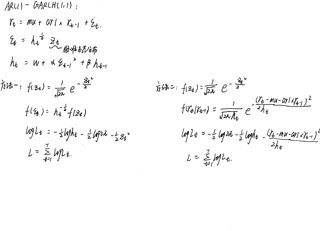 AR(1)-GARCH(1,1):
rt = mu + ar1 × rt-1 + εt.
εt = ht^½ zt
ht = w + α εt-1² + β ht-1
方法一: f(zt) = 1/√2π e^(-zt²/2)
f(εt) = ht^-½ f(zt)
logLt = -½ loght - ½ log2π - ½ zt²
L = Σ(t=1 to T) logLt.
方法二: f(zt) = 1/√2π e^(-zt²/2)
f(rt|rt-1) = 1/√2πht e^(-(rt-mu-ar1×rt-1)²/2ht)
logLt = -½ log2π - ½ loght - (rt-mu-ar1×rt-1)²/2ht
L = Σ(t=1 to T) logLt.